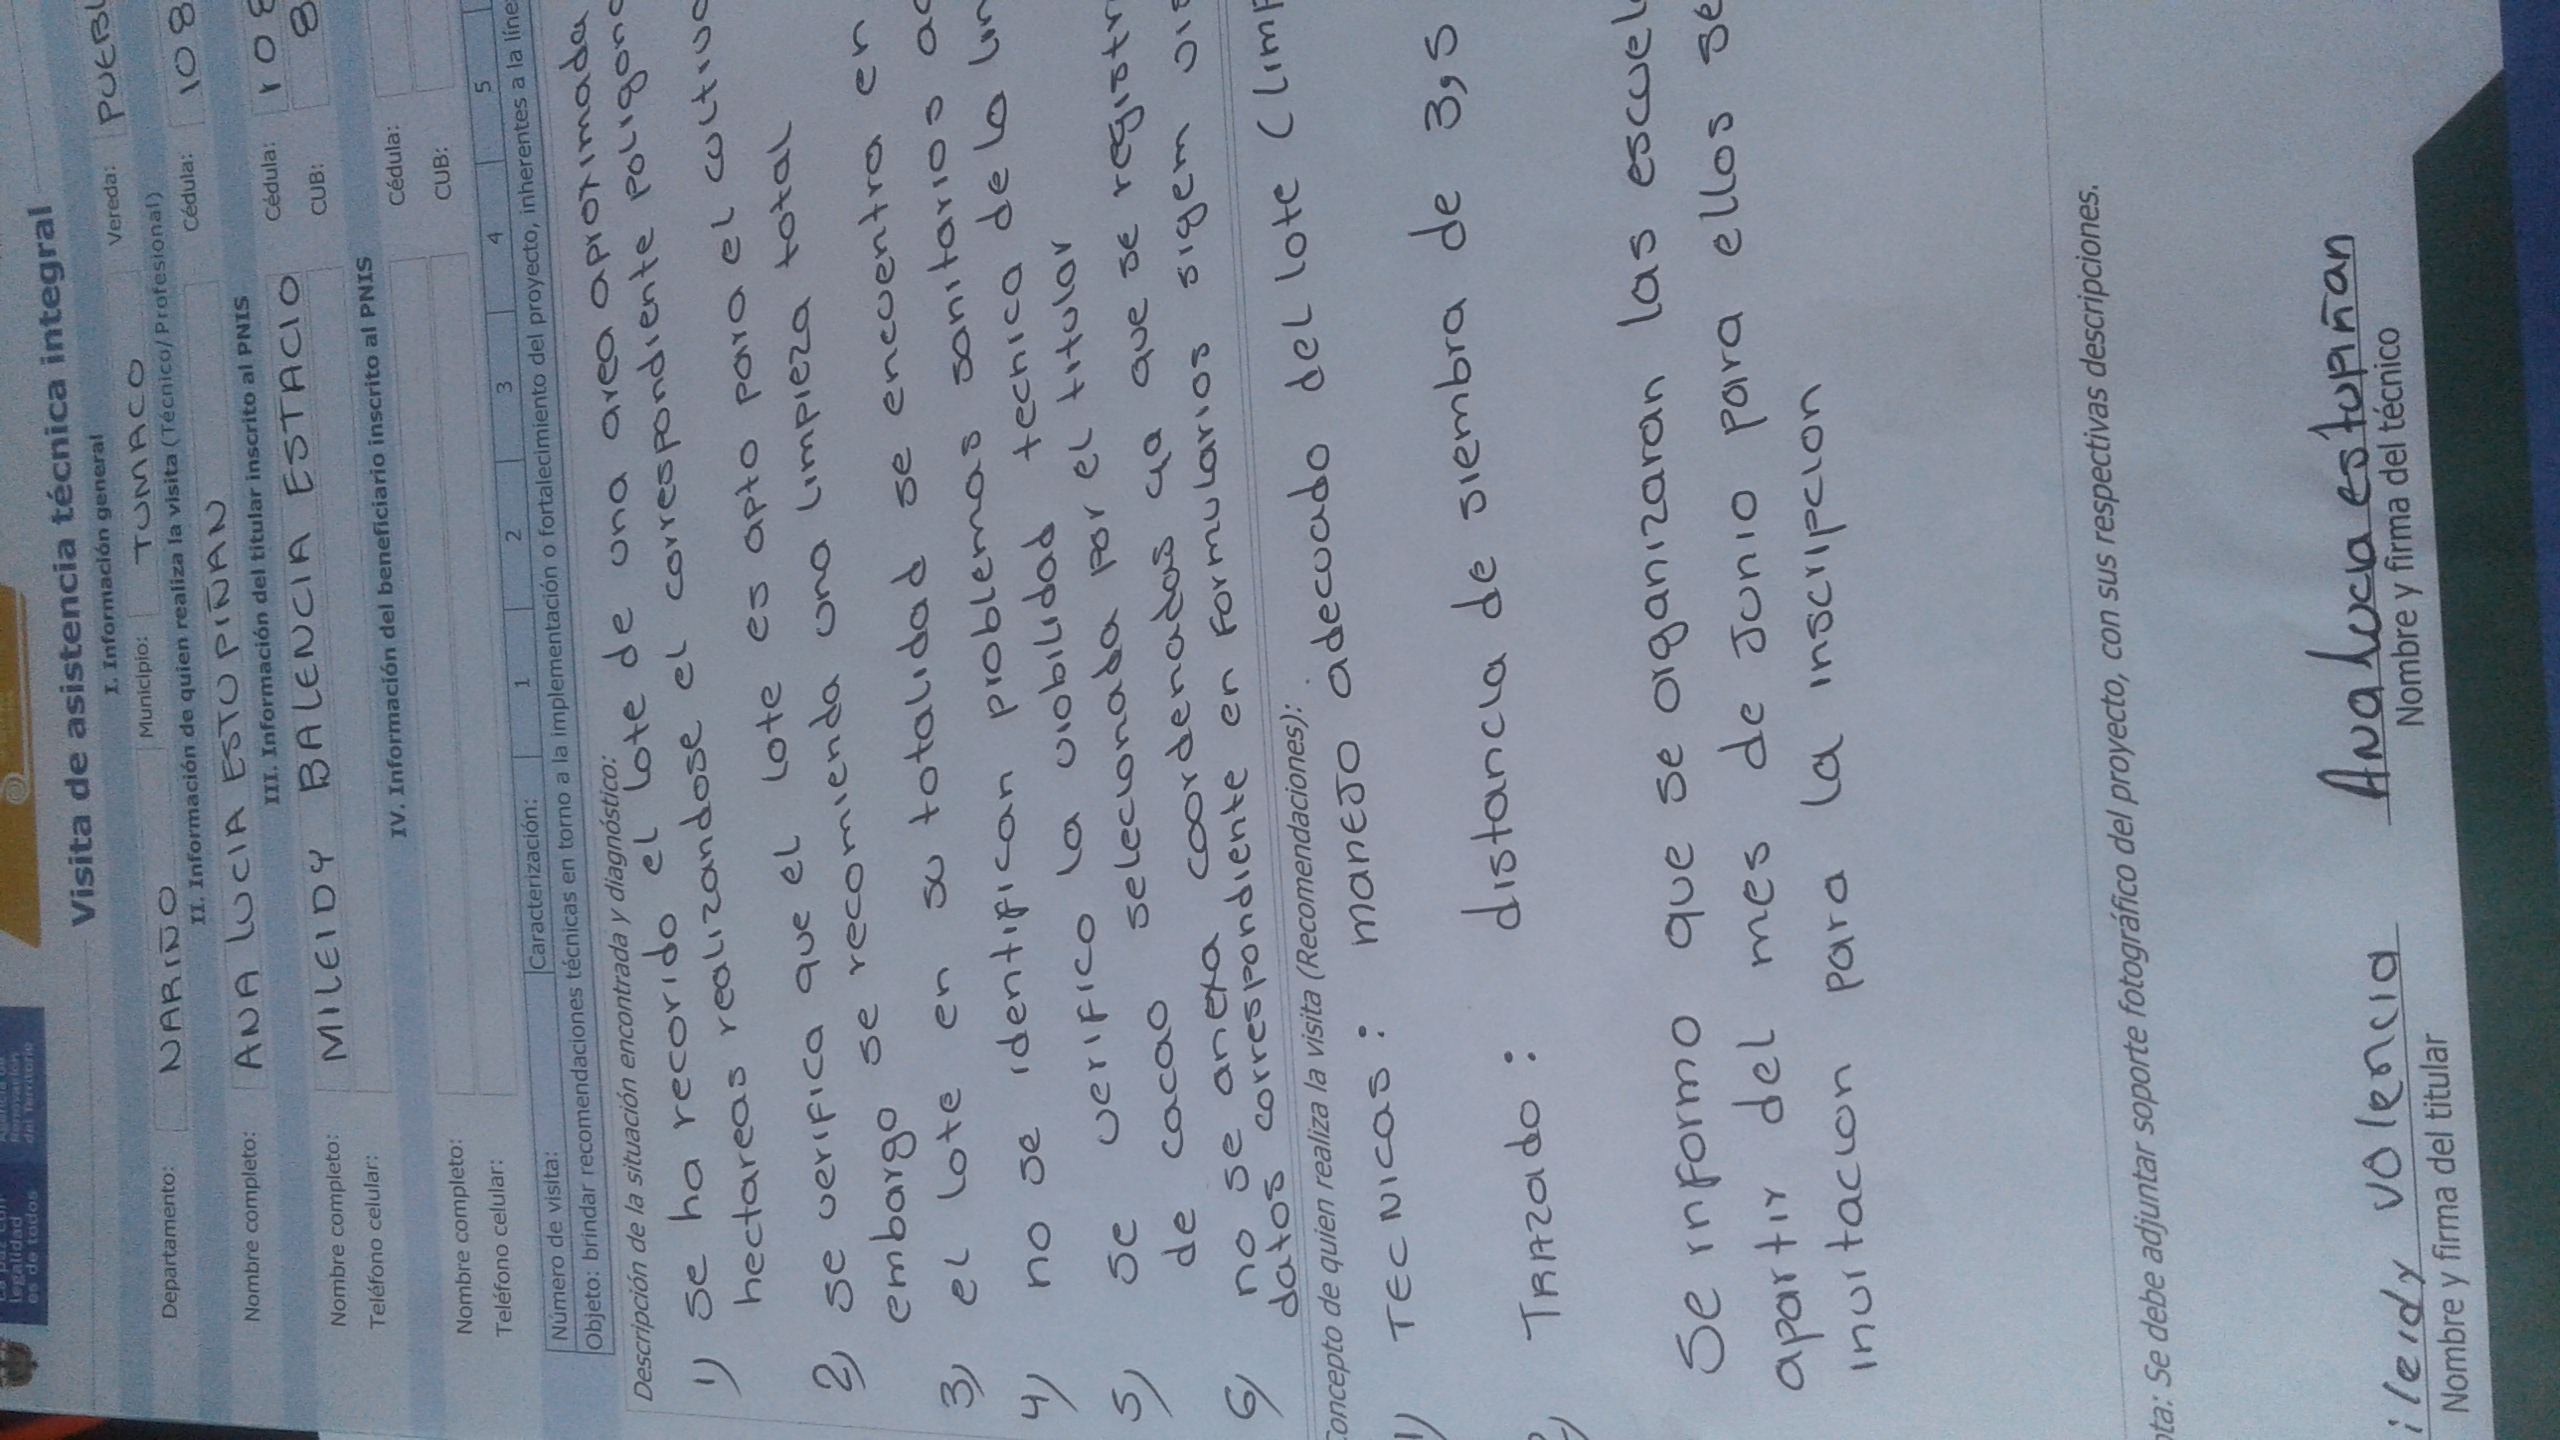 legalidad
es de todos
Renovación
del Territorio
Visita de asistencia técnica integral
I. Información general
Departamento: NARIÑO Municipio: TUMACO Vereda: PUEBL
II. Información de quien realiza la visita (Técnico/ Profesional)
Nombre completo: ANA LUCIA ESTUPIÑAN Cédula: 108
III. Información del titular inscrito al PNIS
Nombre completo: MILEIDY BALENCIA ESTACIO Cédula: 108
Teléfono celular: CUB: 8
IV. Información del beneficiario inscrito al PNIS
Nombre completo: Cédula:
Teléfono celular: CUB:
Número de visita: Caracterización: 1 2 3 4 5
Objeto: brindar recomendaciones técnicas en torno a la implementación o fortalecimiento del proyecto, inherentes a la líne
Descripción de la situación encontrada y diagnóstico:
1) se ha recorido el lote de una area aproximada
hectareas realizandose el correspondiente poligono
2) se verifica que el lote es apto para el cultivo
embargo se recomienda una limpieza total
3) el lote en su totalidad se encuentra en
4) no se identifican problemas sanitarios
5) se verifico la viobilidad tecnica de la
de cacao selecionada por el titular
6) no se anexa coordenadas ya que se registr
datos correspondiente en formularios sigem
Concepto de quien realiza la visita (Recomendaciones):
1) TECNICAS: manejo adecuado del lote (limp
TRAZado: distancia de siembra de 3,5
Se informo que se organizaran las escuel
apartir del mes de Junio para ellos se
invitacion para la inscripcion
ota: Se debe adjuntar soporte fotográfico del proyecto, con sus respectivas descripciones.
ileidy valencia Ana lucia estupiñan
Nombre y firma del titular Nombre y firma del técnico